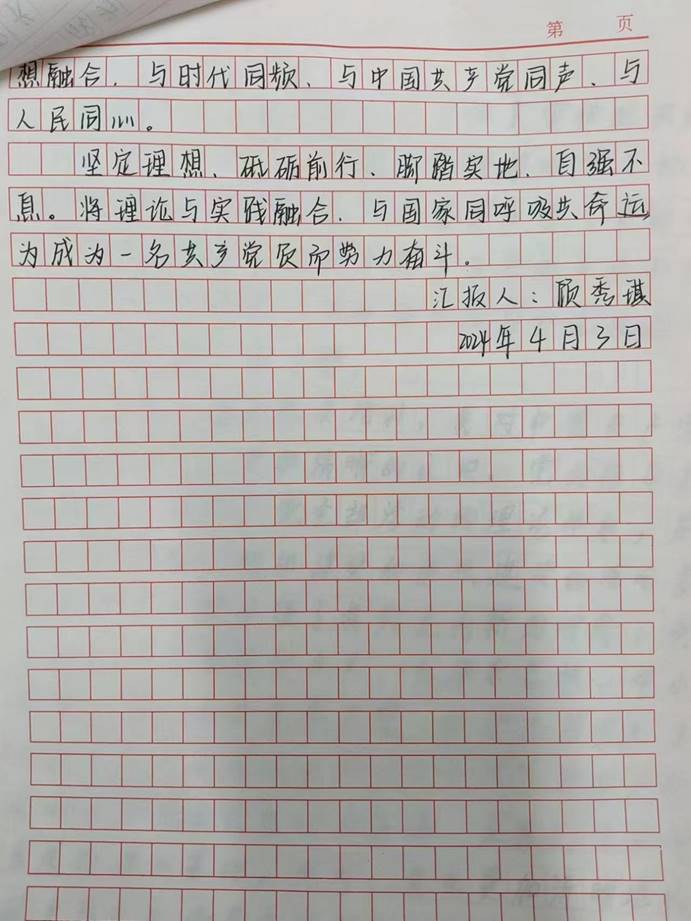 第 页
想融合、与时代同频、与中国共产党同声、与
人民同心。
坚定理想、砥砺前行、脚踏实地、自强不
息。将理论与实践融合、与国家同呼吸共命运
为成为一名共产党员而努力奋斗。
汇报人：顾秀琪
2024年4月3日